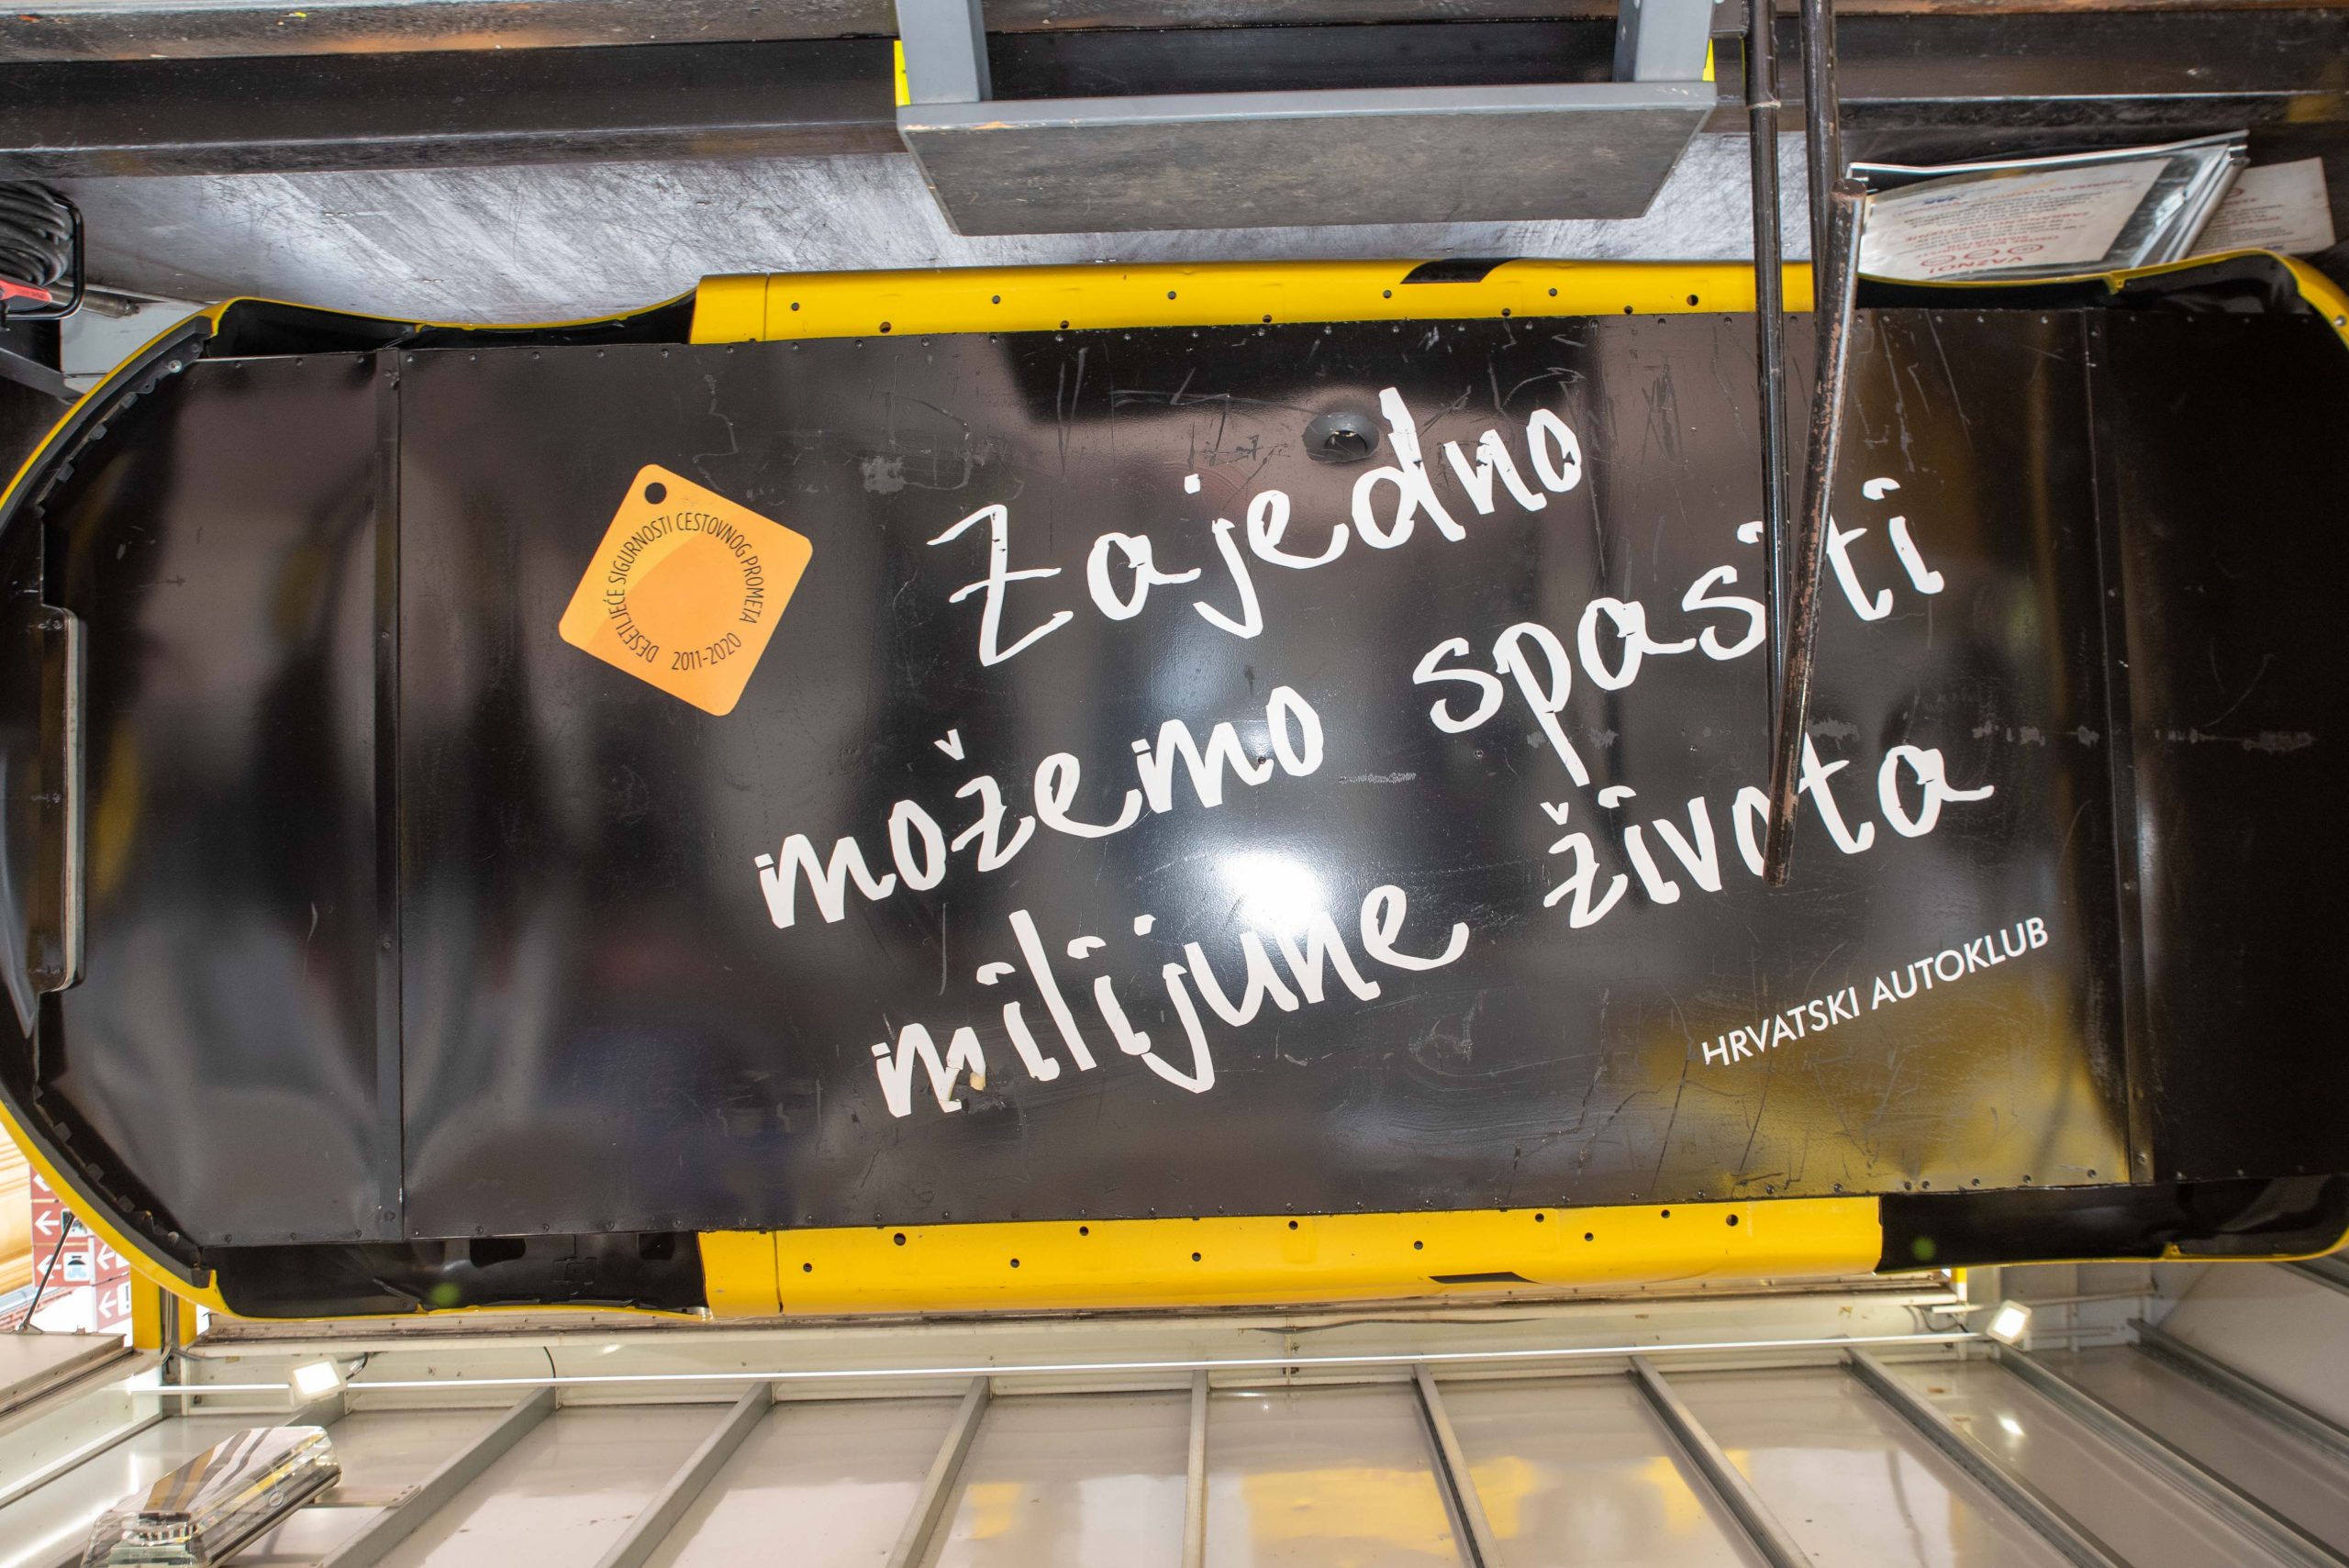 DESETLJEĆE SIGURNOSTI CESTOVNOG PROMETA
2011-2020
Zajedno
možemo spasiti
milijune života
HRVATSKI AUTOKLUB
VAŽNO!